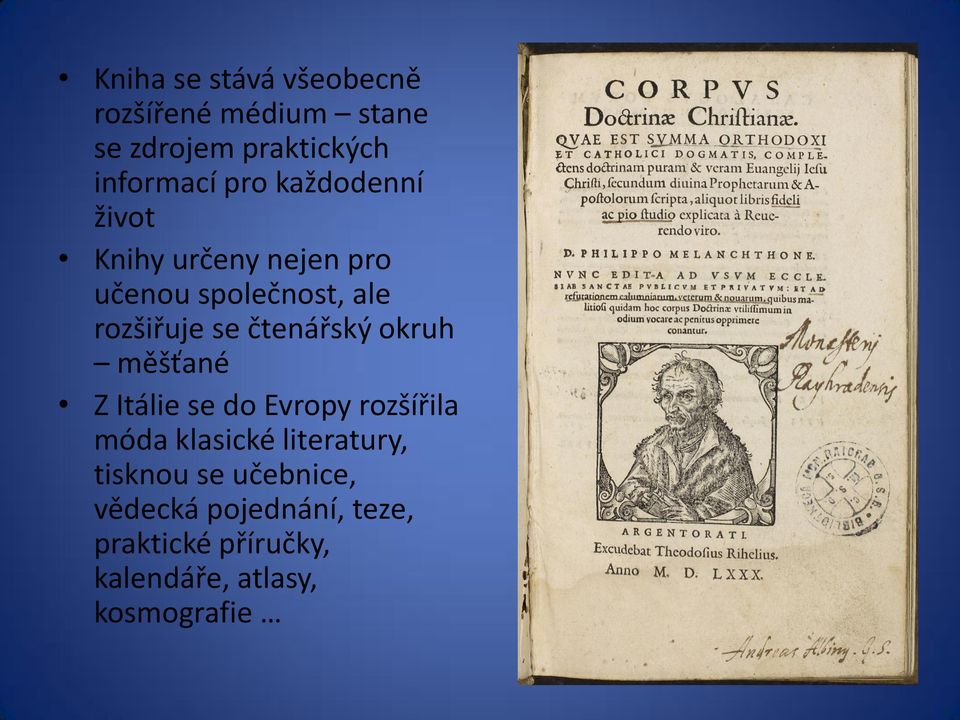 • Kniha se stává všeobecně
rozšířené médium – stane
se zdrojem praktických
informací pro každodenní
život
• Knihy určeny nejen pro
učenou společnost, ale
rozšiřuje se čtenářský okruh
– měšťané
• Z Itálie se do Evropy rozšířila
móda klasické literatury,
tisknou se učebnice,
vědecká pojednání, teze,
praktické příručky,
kalendáře, atlasy,
kosmografie …
CORPVS
Doctrinæ Chriſtianæ.
QVAE EST SVMMA ORTHODOXI
ET CATHOLICI DOGMATIS, COMPLE-
ctens doctrinam puram & veram Euangelij Ieſu
Chriſti, ſecundum diuina Prophetarum & A-
poſtolorum ſcripta, aliquot libris fideli
ac pio ſtudio explicata à Reue-
rendo viro.
D. PHILIPPO MELANCHTHONE.
NVNC EDITA AD VSVM ECCLE-
SIAE SANCTAE PVBLICVM ET PRIVATVM: ET AD
refutationem calumniarum, veterum & nouarum, quibus ma-
litioſi quidam hoc corpus Doctrinæ vtiliſſimum in
odium vocare ac penitus opprimere
conantur.
Monasterij
Rayhradensis
ARGENTORATI.
Excudebat Theodoſius Rihelius.
Anno M. D. LXXX.
BIBLIOTHECA MON. RAIGRAD. O.S.B.
Andreas